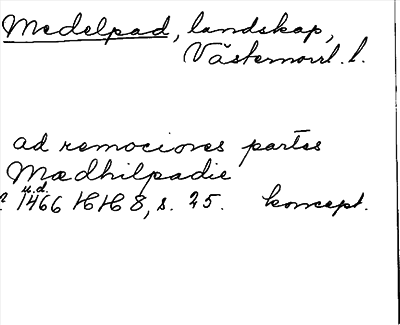 Medelpad, landskap,
Västernorrl. l.
ad remociores partes
Mædhilpadie
u.d.
1466 HH 8, s. 25. koncept.